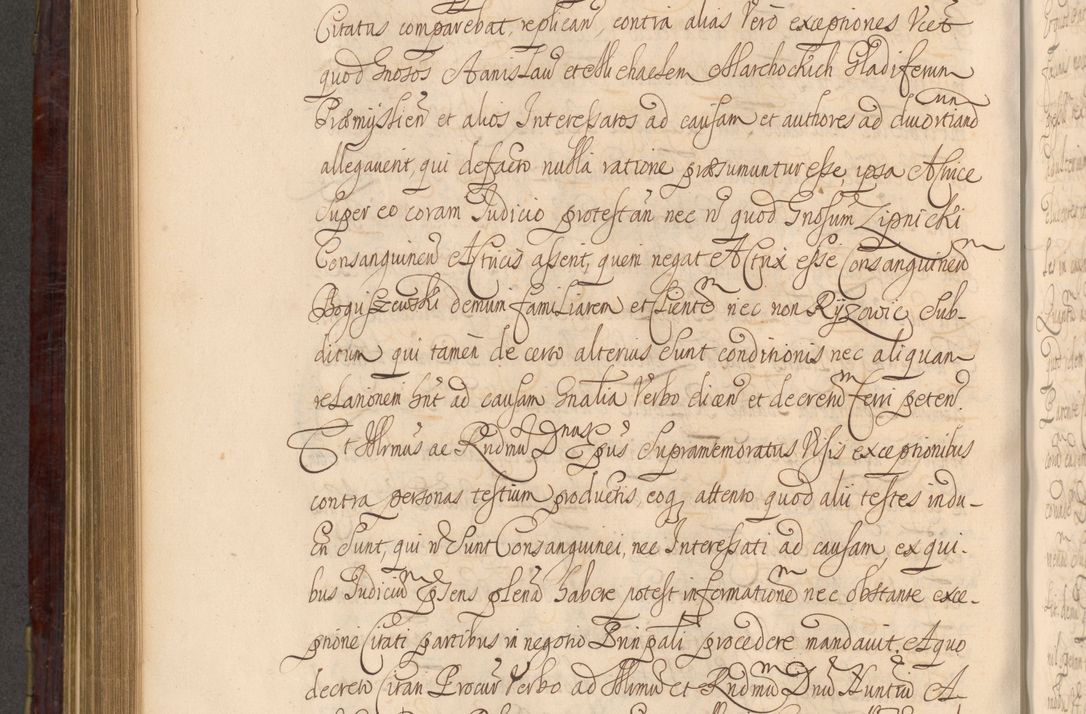 Citatus comparebat, replican̄, contra alias Verò exceptiones Vcet
quod Gnosos Stanislau et Michaelem Marchockich Gladiferum
Præmyslien̄ et alios Interessatos ad causam et authores ad divortiand̄
allegaverit, qui defacto nulla ratione præsumuntur esse, ipsa Actrice
Super eo coram Judicio protestan̄ nec n̄ quod Gnosum Lipnicki
Consanguineū Actricis asserit, quem negat Actrix esse Consanguineū
Boguszewski demum familiarem et Clientē nec non Ryzowic Sub-
ditum qui tamen̄ de certo alterius Sunt conditionis nec aliquam
relationem hn̄t ad causam Gnalia Verbo dicen̄ et decretū ferri peten̄.
Et Illrmus ac Rndmus Dnus Epus Supramemoratus Visis exceptionibus
contra personas testium productis, eoq attento quod alii testes indu-
cti Sunt, qui n̄ Sunt Consanguinei, nec Interessati ad causam, ex qui-
bus Judiciū pn̄s plenā habere potest informationē nec obstante exce-
ptione Citati partibus in negotio Prin̄pali procedere mandavit. A quo
decreto Citan̄ Procur̄ Verbo ad Illrmū et Rndmū Dnū Nuntiū A-